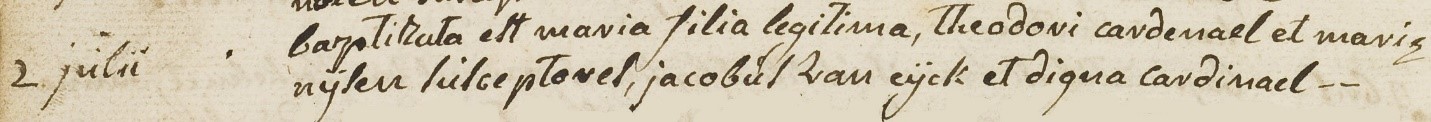 baptizata est maria filia legitima, theodori cardenael et mariæ
2 julii nijsen susceptores, jacobus van eijck et digna cardinael --